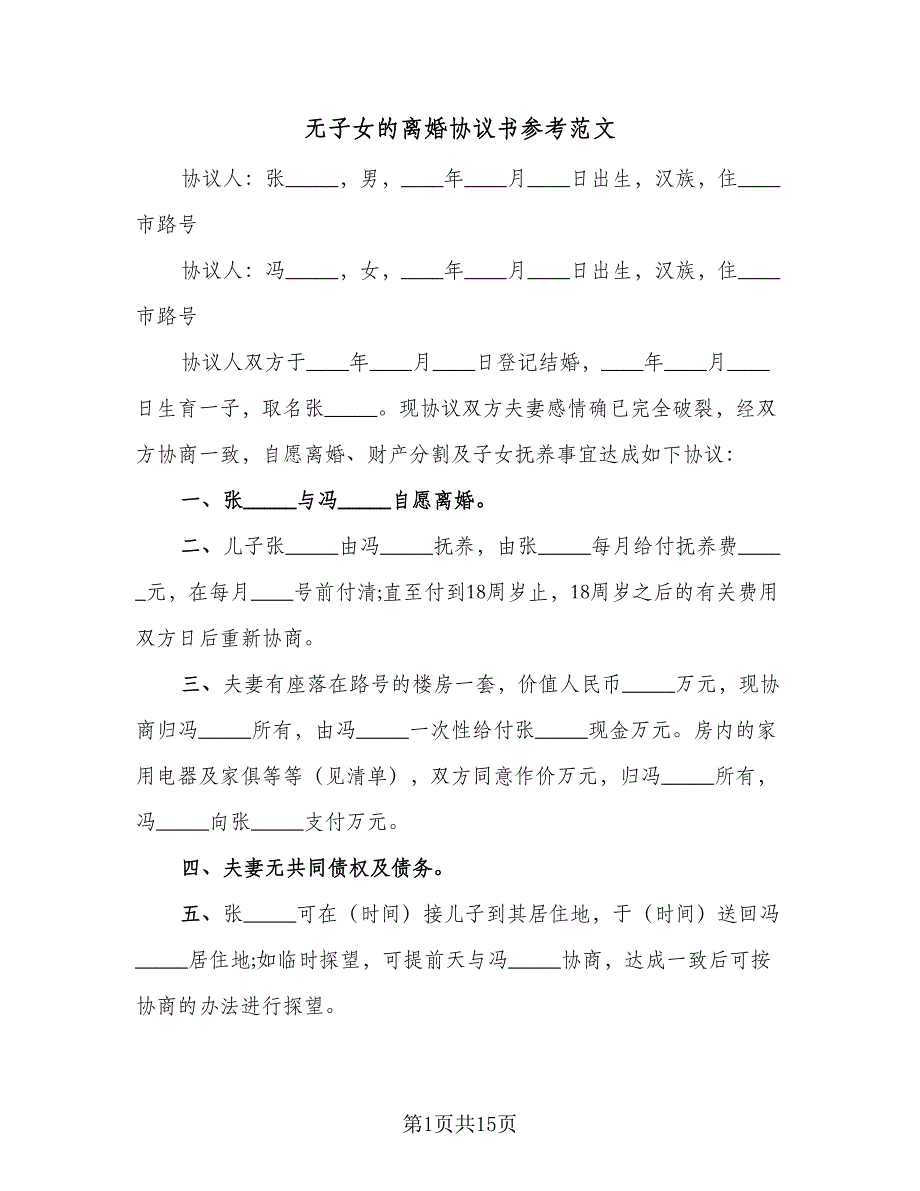 无子女的离婚协议书参考范文
协议人：张_____，男，____年____月____日出生，汉族，住____
市路号
协议人：冯_____，女，____年____月____日出生，汉族，住____
市路号
协议人双方于____年____月____日登记结婚，____年____月____
日生育一子，取名张_____。现协议双方夫妻感情确已完全破裂，经双
方协商一致，自愿离婚、财产分割及子女抚养事宜达成如下协议：
一、张_____与冯_____自愿离婚。
二、儿子张_____由冯_____抚养，由张_____每月给付抚养费____
_元，在每月____号前付清;直至付到18周岁止，18周岁之后的有关费用
双方日后重新协商。
三、夫妻有座落在路号的楼房一套，价值人民币_____万元，现协
商归冯_____所有，由冯_____一次性给付张_____现金万元。房内的家
用电器及家俱等等（见清单），双方同意作价万元，归冯_____所有，
冯_____向张_____支付万元。
四、夫妻无共同债权及债务。
五、张_____可在（时间）接儿子到其居住地，于（时间）送回冯
_____居住地;如临时探望，可提前天与冯_____协商，达成一致后可按
协商的办法进行探望。
第1页共15页